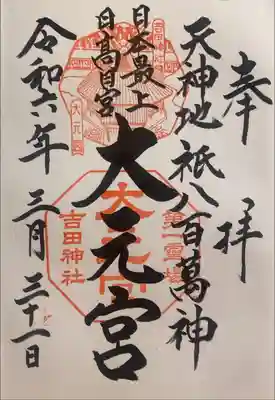 奉拝
天神地祇八百萬神
日本最上
日高日宮
大元宮
令和六年三月三十一日
吉田神社